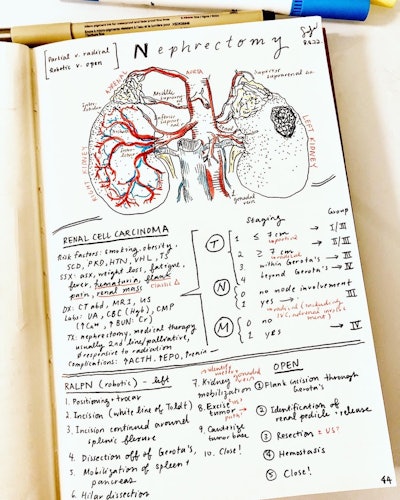 Partial v. radical
Robotic v. open
Nephrectomy
ADRENAL
AORTA
Superior
suprarenal aa.
Middle
suprarenal
Inferior
suprarenal
RIGHT KIDNEY
LEFT KIDNEY
gonadal
RENAL CELL CARCINOMA
Risk factors: smoking, obesity,
SCD, PKD, HTN, VHL, TS
SSX: asx, weight loss, fatigue,
fever, hematuria, flank
pain, renal mass
classic Δ
DX: CT abd, MRI, US
Labs: UA, CBC (Hgb), CMP
(↑Ca++ ↑BUN:Cr)
TX: nephrectomy, medical therapy
usually 2nd line/palliative,
responsive to radiation
Complications: ↑ACTH ↑EPO, ↑renin
Staging
Group
T
1 ≤ 7 cm → I/III
2 ≥ 7 cm → II/III
radical
3 within Gerota's → III
4 beyond Gerota's → IV
N
0 no node involvement
1 yes → III
radical (including
IVC, adrenal involve
ment)
M
0 no
1 yes → IV
RALPN (robotic) - left
1. Positioning + trocar
2. Incision (white line of Toldt)
3. Incision continued around
splenic flexure
4. Dissection off of Gerota's,
5. Mobilization of spleen +
pancreas
6. Hilar dissection
7. Kidney
mobilization
8. Excise
tumor
9. Cauterize
tumor base
10. Close!
OPEN
① Flank incision through
Gerota's
② Identification of
renal pedicle, release
③ Resection ± US?
④ Hemostasis
⑤ Close!
44